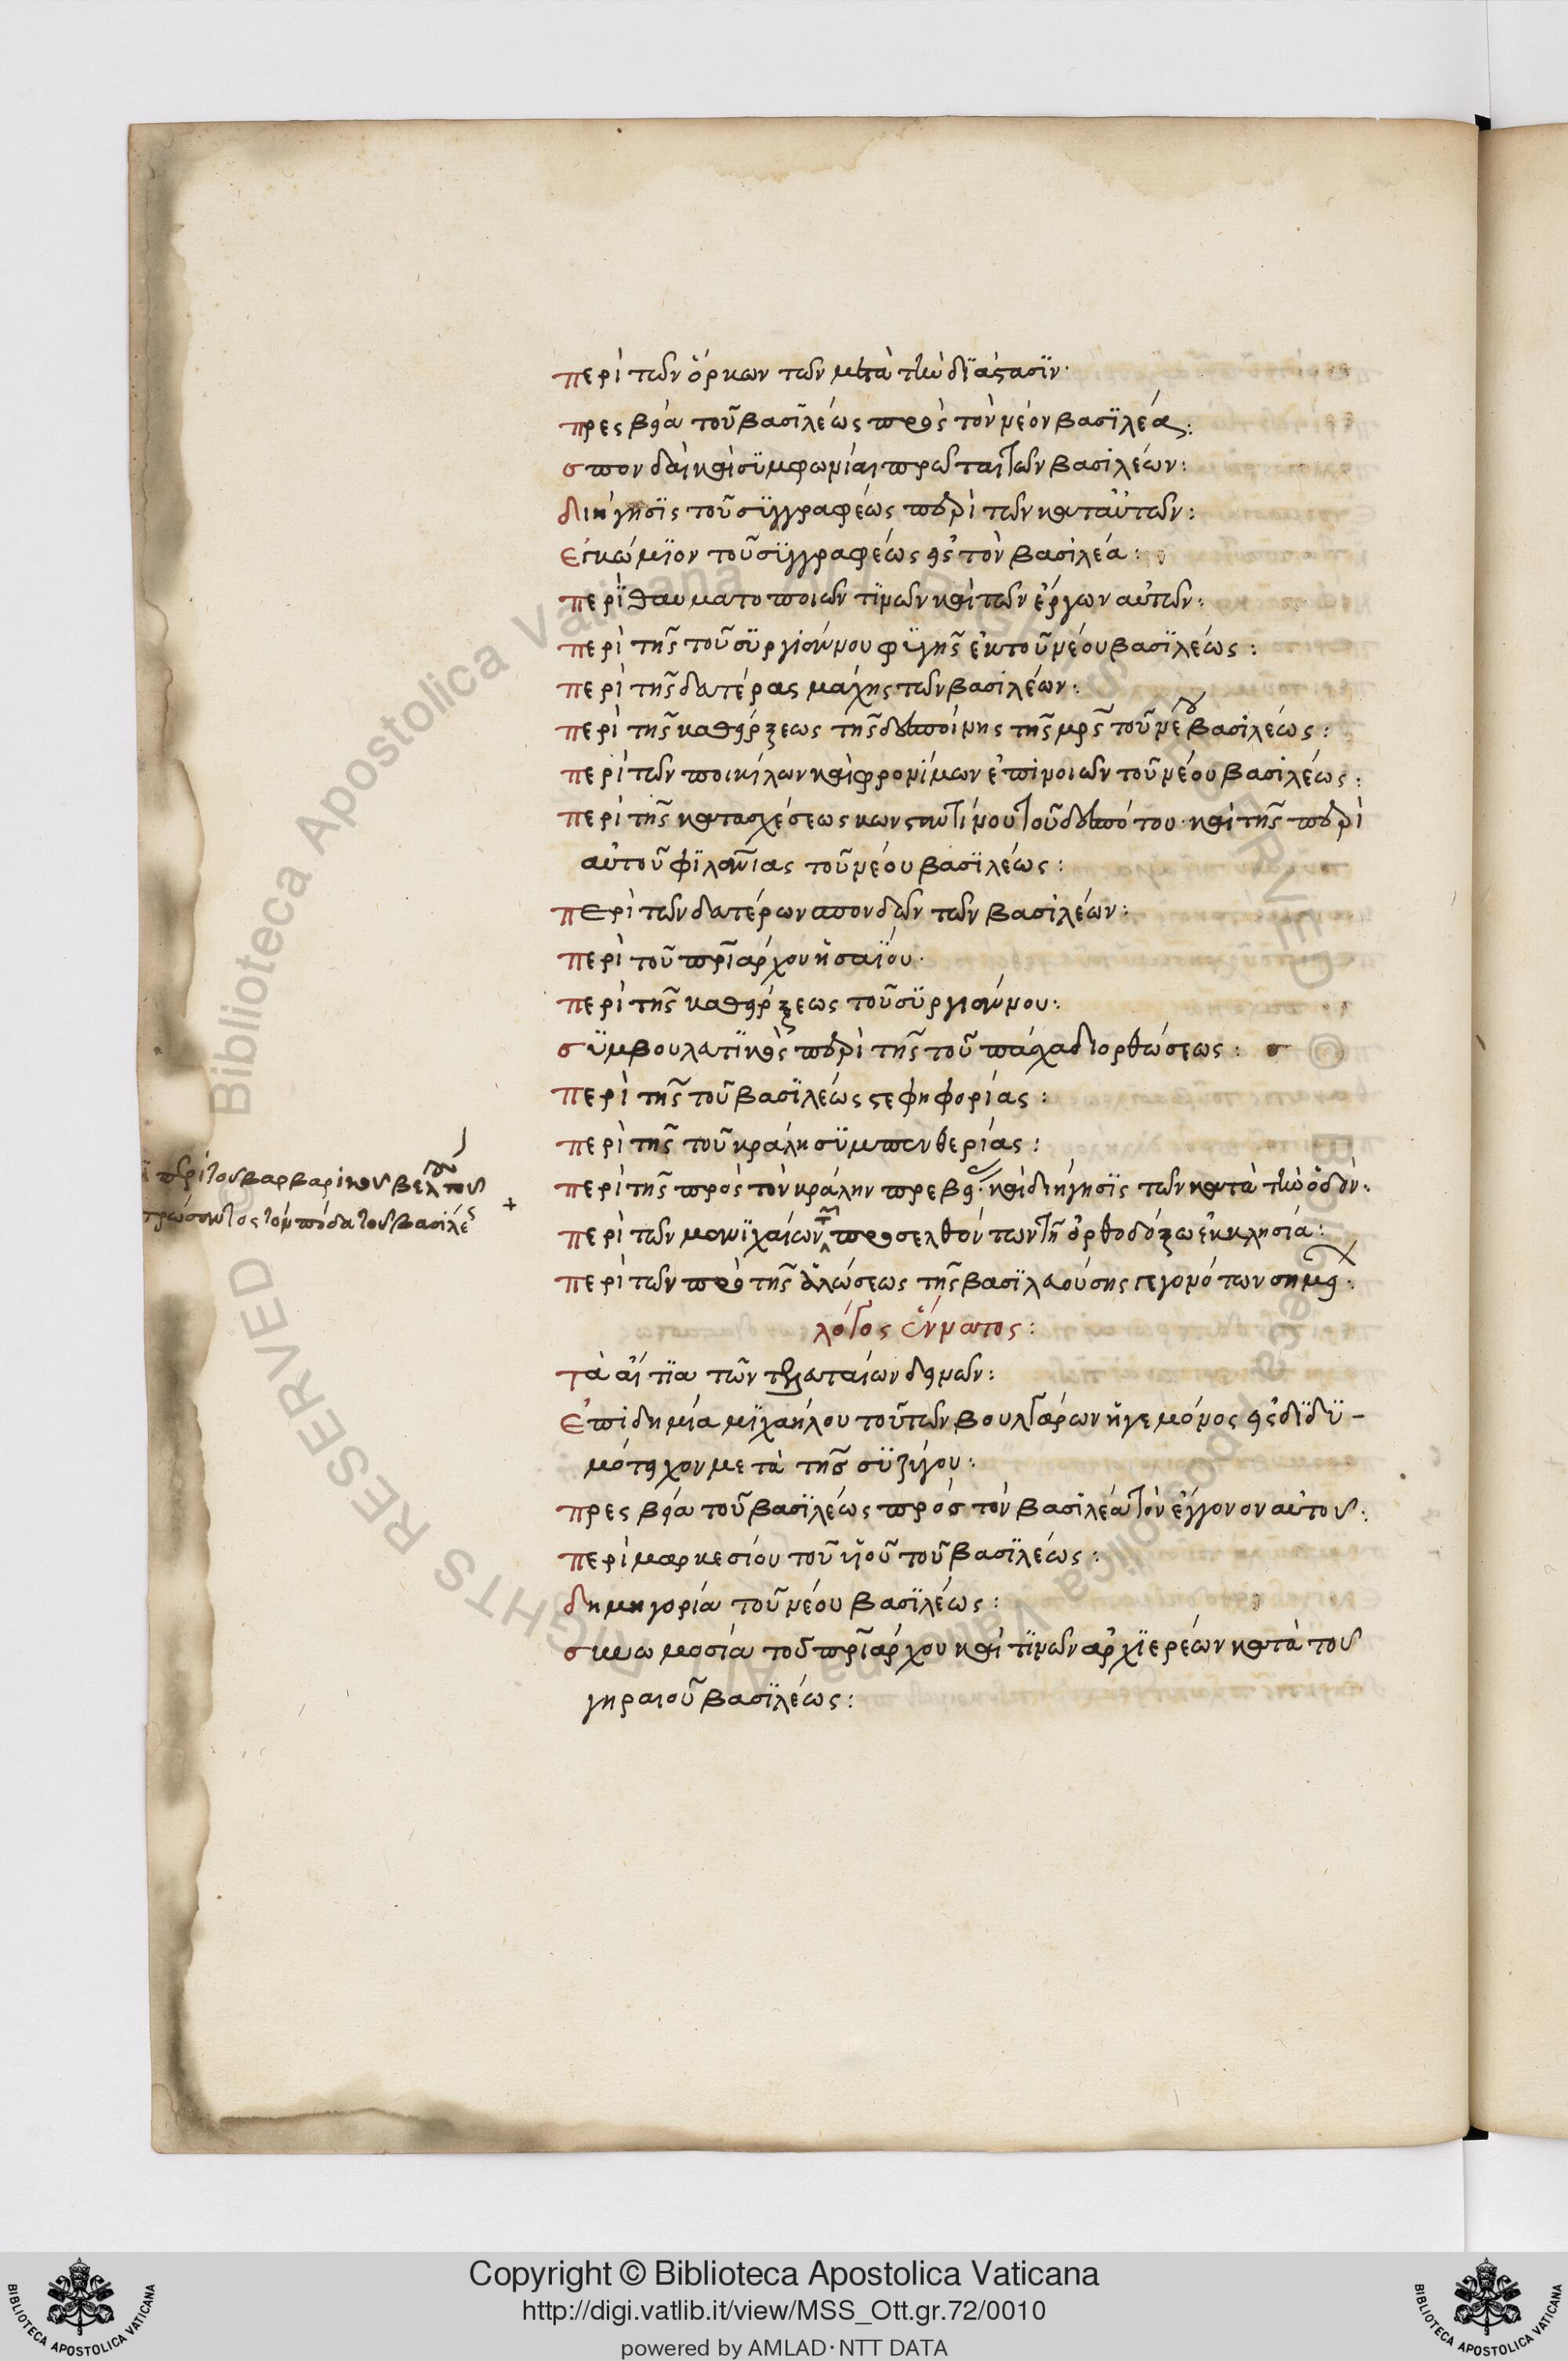 περὶ τῶν ὅρκων τῶν μετὰ τὴν διάστασιν·
πρεσβεία τοῦ βασιλέως πρὸς τὸν νέον βασιλέα:
σπονδαὶ καὶ συμφωνίαι πρῶται τῶν βασιλέων:
διήγησις τοῦ συγγραφέως περὶ τῶν κατ' αὐτῶν:
ἐγκώμιον τοῦ συγγραφέως εἰς τὸν βασιλέα:
περὶ θαυματοποιῶν τινῶν καὶ τῶν ἔργων αὐτῶν:
περὶ τῆς τοῦ συργιάννου φυγῆς ἐκ τοῦ νέου βασιλέως:
περὶ τῆς δευτέρας μάχης τῶν βασιλέων:
περὶ τῆς καθείρξεως τῆς δεσποίνης τῆς μρς τοῦ νέου βασιλέως:
περὶ τῶν ποικίλων καὶ φρονίμων ἐπινοιῶν τοῦ νέου βασιλέως:
περὶ τῆς κατασχέσεως κωνσταντίνου τοῦ δεσπότου· καὶ τῆς περὶ
αὐτοῦ φιλονίας τοῦ νέου βασιλέως:
περὶ τῶν δευτέρων σπονδῶν τῶν βασιλέων:
περὶ τοῦ πριάρχου ἡσαΐου·
περὶ τῆς καθείρξεως τοῦ συργιάννου:
συμβουλευτικὸς περὶ τῆς τοῦ πάσχα διορθώσεως:
περὶ τῆς τοῦ βασιλέως στεφηφορίας:
περὶ τῆς τοῦ κράλη συμπενθερίας:
περὶ τοῦ βαρβαρικοῦ βέλους τοῦ
τρώσαντος τὸν πόδα τοῦ βασιλέως
+
περὶ τῆς πρὸς τὸν κράλην πρεβείας· καὶ διήγησις τῶν κατὰ τὴν ὁδόν:
περὶ τῶν μανιχαίων τῶν προσελθόντων τῇ ὀρθοδόξω ἐκκλησία:
περὶ τῶν πρὸ τῆς ἁλώσεως τῆς βασιλευούσης γεγονότων σημείων:
λόγος ἔννατος:
τὰ αἴτια τῶν τελευταίων δεινῶν:
ἐπιδημία μιχαήλου τοῦ τῶν βουλγάρων ἡγεμόνος εἰς διδυ-
μότειχον μετὰ τῆς συζύγου:
πρεσβεία τοῦ βασιλέως πρὸς τὸν βασιλέα τὸν ἔγγονον αὐτοῦ:
περὶ μαρκεσίου τοῦ υἱοῦ τοῦ βασιλέως:
δημηγορία τοῦ νέου βασιλέως:
συνωμοσία τοῦ πριάρχου καὶ τινῶν ἀρχιερέων κατὰ τοῦ
γηραιοῦ βασιλέως:
Biblioteca Apostolica Vaticana ALL RIGHTS RESERVED ©
Copyright © Biblioteca Apostolica Vaticana
http://digi.vatlib.it/view/MSS_Ott.gr.72/0010
powered by AMLAD·NTT DATA
BIBLIOTECA APOSTOLICA VATICANA
BIBLIOTECA APOSTOLICA VATICANA